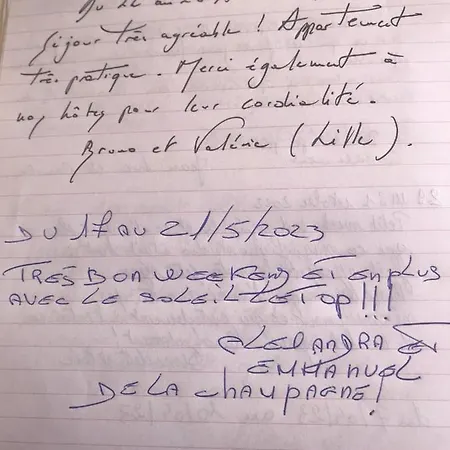 Séjour très agréable ! Appartement
très pratique. Merci également à
nos hôtes pour leur cordialité.
Bruno et Valérie (Lille).
DU 17 AU 21/5/2023
TRES BON WEEKEND ET EN PLUS
AVEC LE SOLEIL LE TOP !!!
ALEXANDRA ET
EMMANUEL
DE LA CHAMPAGNE !